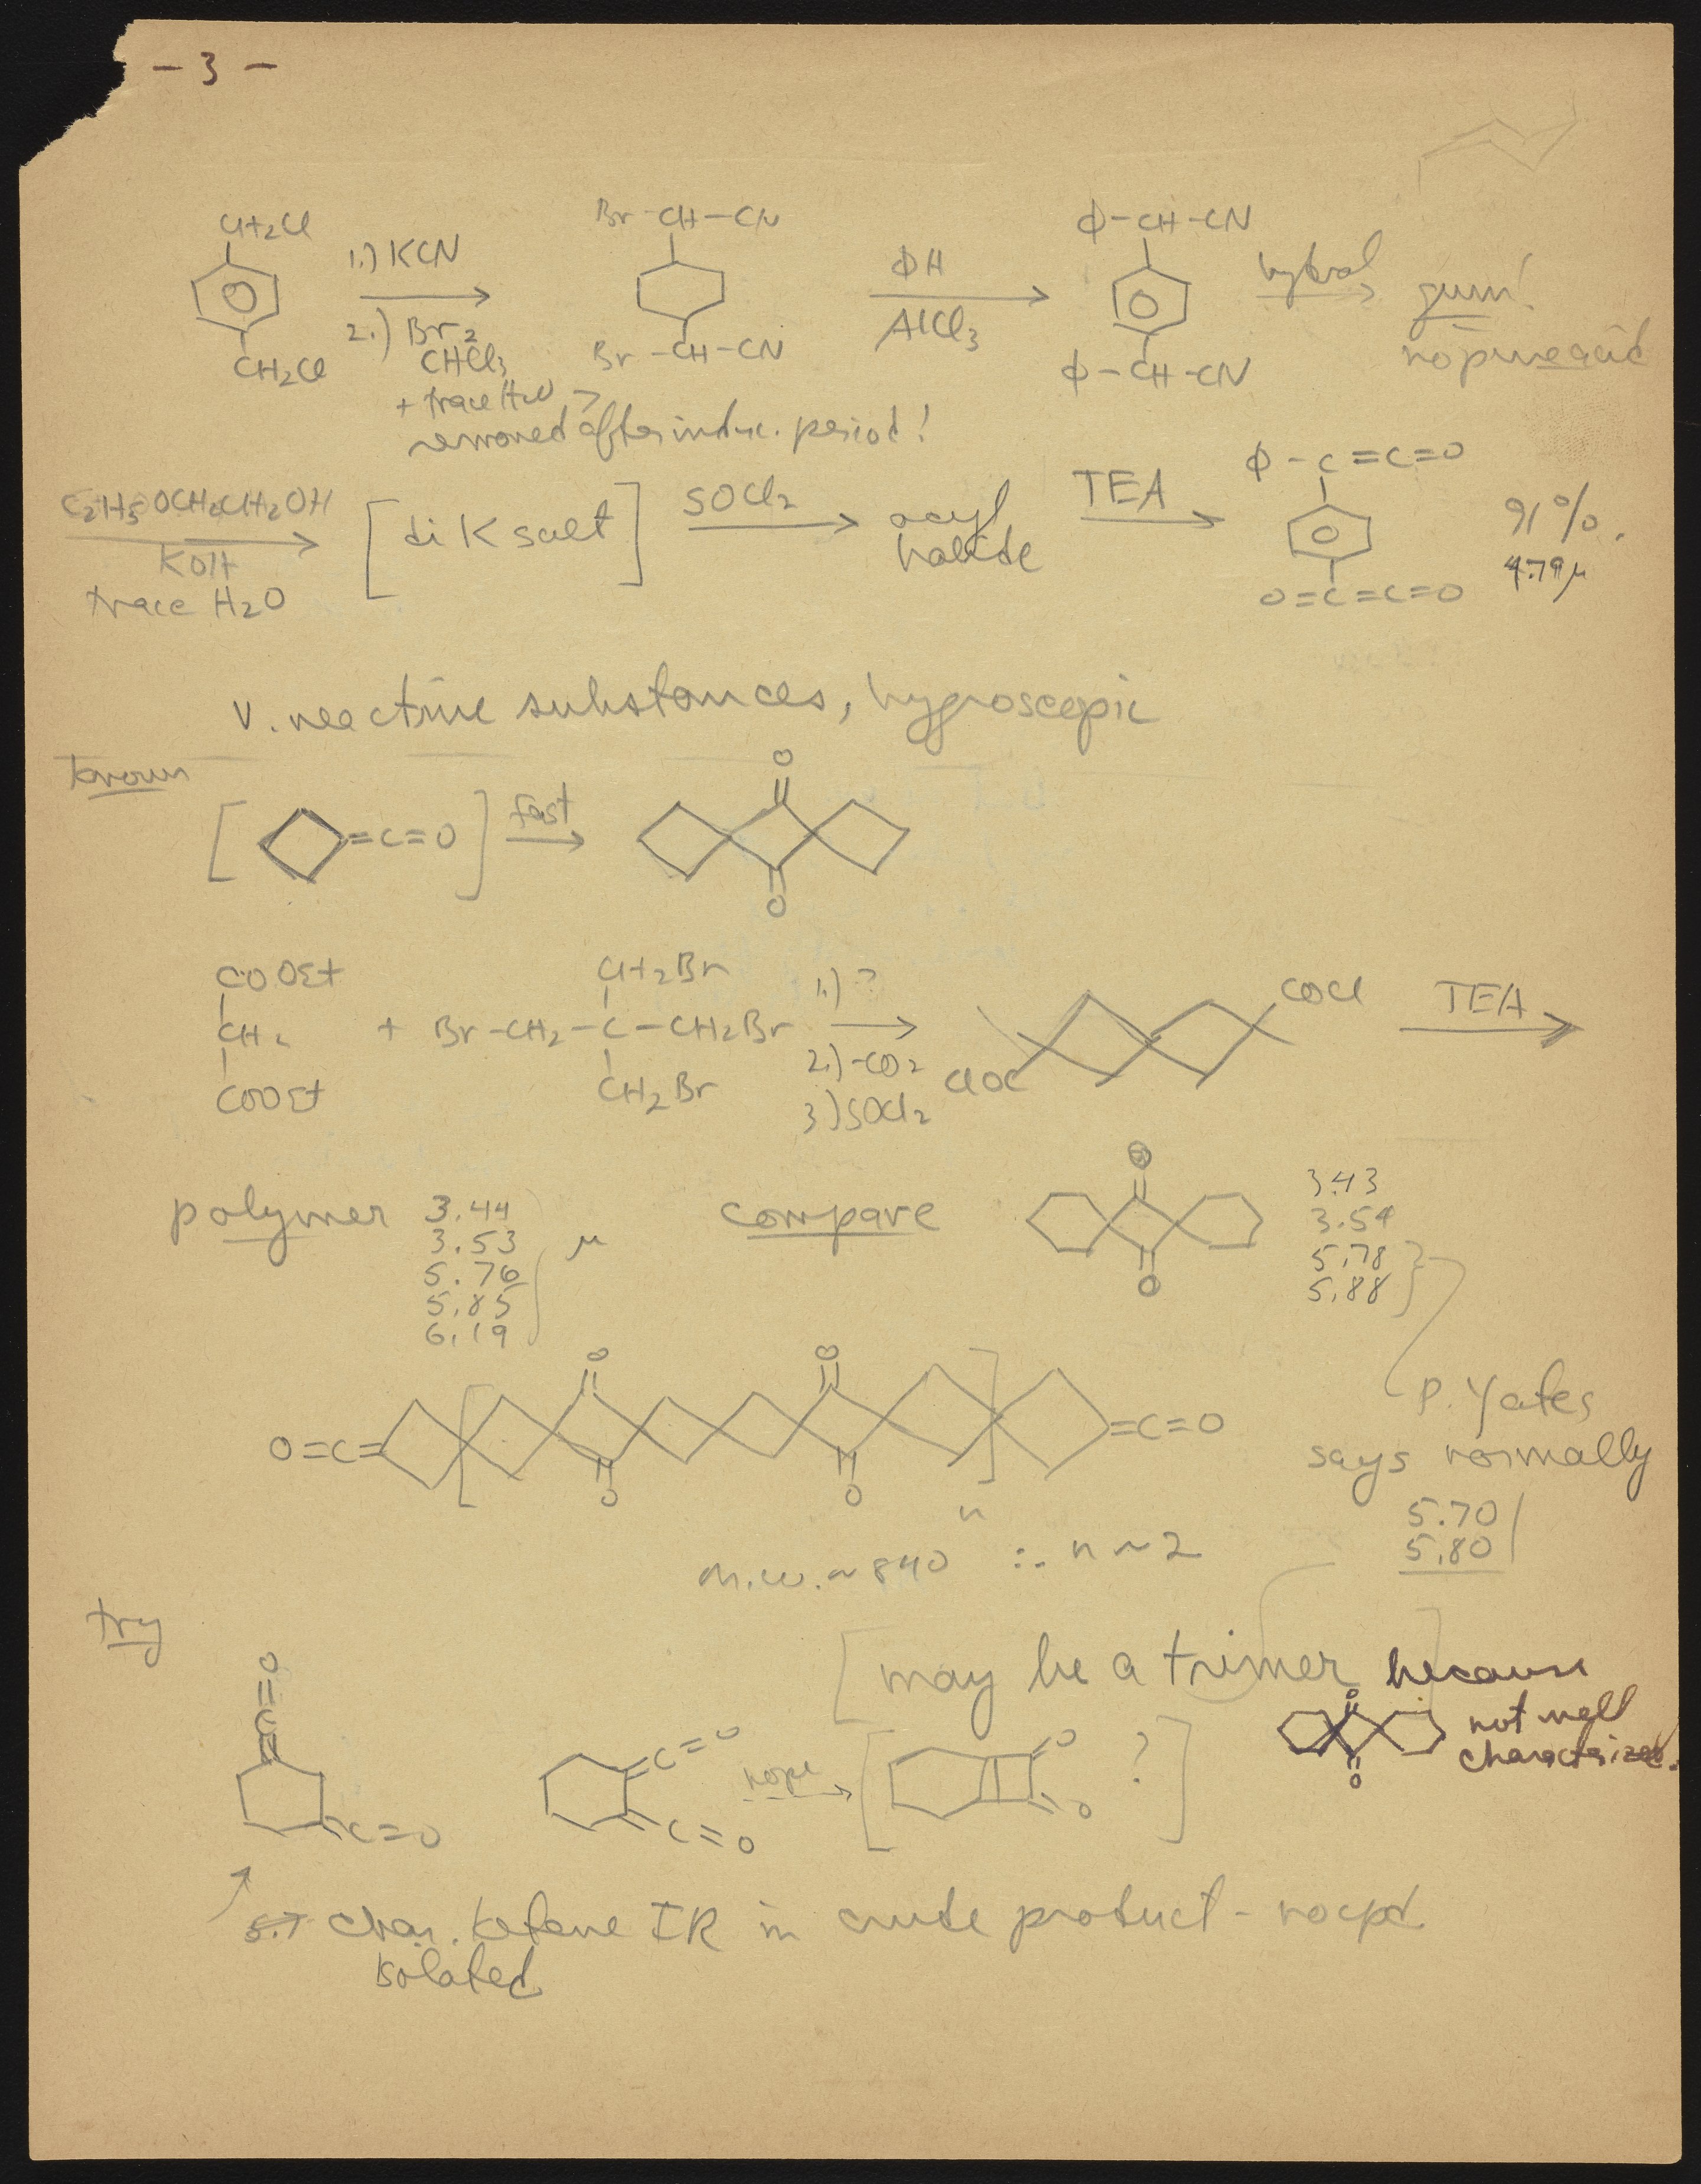 - 3 -
CH2Cl
CH2Cl
1.) KCN
2.) Br2
CHCl3
+ trace H2O >
removed after induc. period!
Br-CH-CN
Br-CH-CN
ΦH
AlCl3
Φ-CH-CN
Φ-CH-CN
hydrol
gum!
no pure acid
C2H5OCH2CH2OH
KOH
trace H2O
[di K salt]
SOCl2
acyl
halide
TEA
Φ-C=C=O
O=C=C=O
91%.
4.79μ
v. reactive substances, hygroscopic
known
[ =C=O ]
fast
O
O
COOEt
CH2
COOEt
+
CH2Br
Br-CH2-C-CH2Br
CH2Br
1.) ?
2.) -CO2
3) SOCl2
COCl
ClOC
TEA
polymer
3.44
3.53
5.76
5.85
6.19
μ
compare
O
O
3.43
3.54
5.78
5.88
P. Yates
says normally
5.70
5.80
O O
O=C= =C=O
O O
n
m.w. ~ 840 ∴ n ~ 2
try
[may be a trimer] because
O
O
not well
characterized.
O=C=
=C=O
=C=O
=C=O
nope
[ =O =O ? ]
5.7 char. ketene IR in crude product - no cpd.
isolated